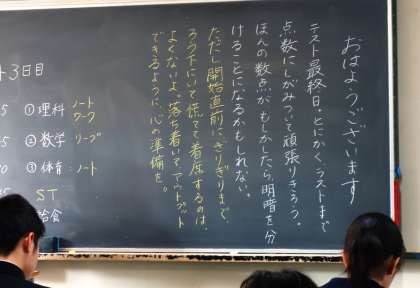 おはようございます
テスト最終日。とにかく、ラストまで
点数にしがみついて頑張りきろう。
ほんの数点が、もしかしたら、明暗を分
けることになるかもしれない。
ただし、開始直前に、ぎりぎりまで、
ろう下にいて、慌てて着席するのは、
よくないよ。落ち着いてアウトプット
できるように、心の準備を。
3日目
5 ①理科 ノート
ワーク
5 ②数学 リープ
0 ③体育:ノート
ST
給食